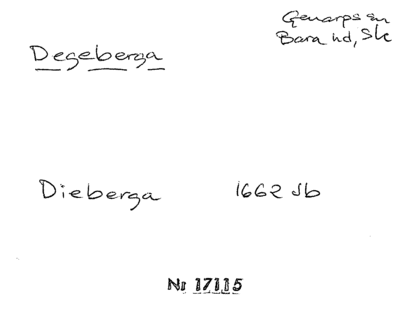 Degeberga
Genarps sn
Bara hd, Sk
Dieberga 1662 Jb
Nr 17115